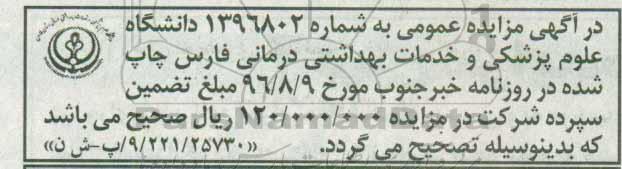 در آگهی مزایده عمومی به شماره ۱۳۹۶۸۰۲ دانشگاه
علوم پزشکی و خدمات بهداشتی درمانی فارس چاپ
شده در روزنامه خبرجنوب مورخ ۹۶/۸/۹ مبلغ تضمین
سپرده شرکت در مزایده ۱۲۰/۰۰۰/۰۰۰ ریال صحیح می باشد
که بدینوسیله تصحیح می گردد. «۹/۲۲۱/۲۵۷۳۰/پ-ش ن»